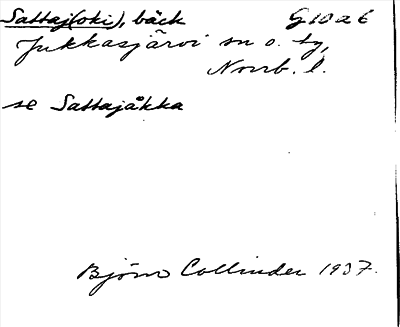 Sattaj(oki), bäck G 10 a b
Jukkasjärvi sn o. tg,
Norrb. l.
se Sattajåkka
Björn Collinder 1937.